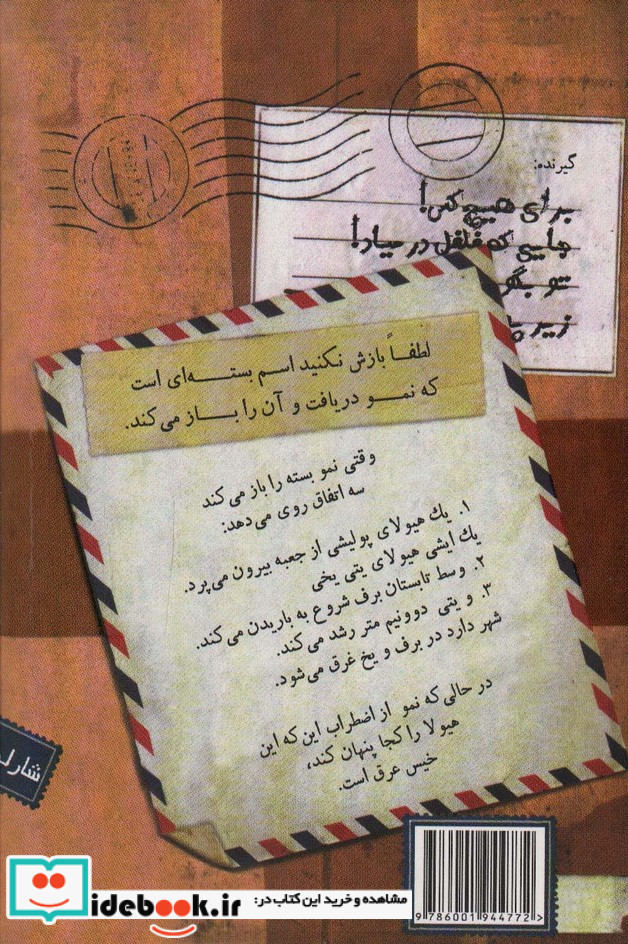 گیرنده:
برای هیچ کس!
جایی که فلفل در میاد!
تو بگو
زیر
لطفاً بازش نکنید اسم بسته‌ای است
که نمو دریافت و آن را باز می‌کند.
وقتی نمو بسته را باز می‌کند
سه اتفاق روی می‌دهد:
۱. یك هیولای پولیشی از جعبه بیرون می‌پرد.
یك ایشی هیولای یتی یخی
۲. وسط تابستان برف شروع به باریدن می‌کند.
۳. و یتی دوونیم متر رشد می‌کند.
شهر دارد در برف و یخ غرق می‌شود.
در حالی که نمو از اضطراب این که این
هیولا را کجا پنهان کند،
خیس عرق است.
شارلـ
9 786001 944772 >
مشاهده و خرید این کتاب در:
idebook.ir